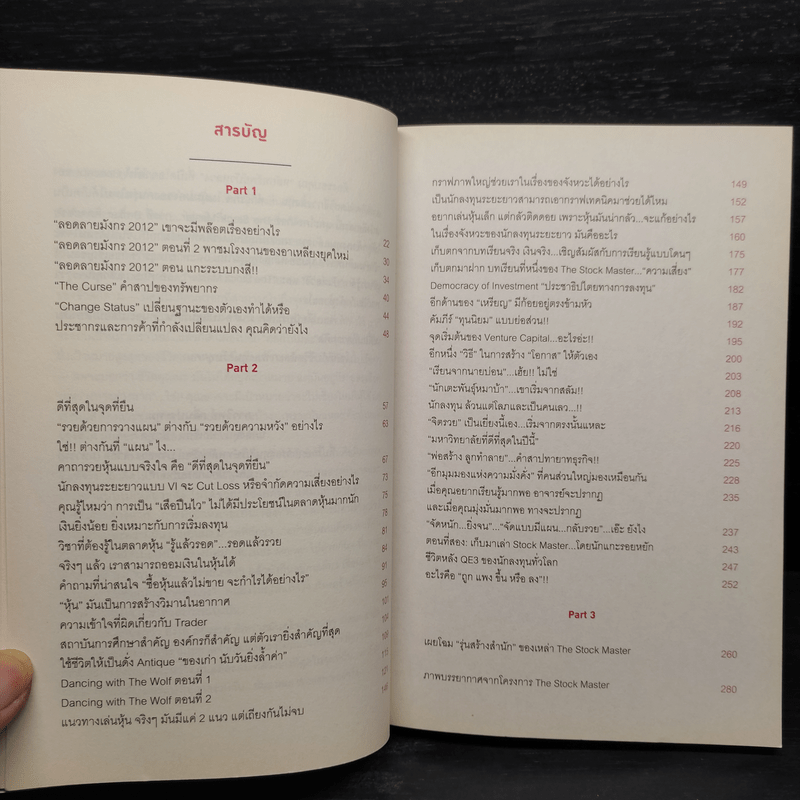 สารบัญ
Part 1
"ลอดลายมังกร 2012" เขาจะมีพล็อตเรื่องอย่างไร 22
"ลอดลายมังกร 2012" ตอนที่ 2 พาชมโรงงานของอาเหลียงยุคใหม่ 30
"ลอดลายมังกร 2012" ตอน แกะระบบกงสี!! 34
"The Curse" คำสาปของทรัพยากร 40
"Change Status" เปลี่ยนฐานะของตัวเองทำได้หรือ 44
ประชากรและการค้าที่กำลังเปลี่ยนแปลง คุณคิดว่ายังไง 48
Part 2
ดีที่สุดในจุดที่ยืน 57
"รวยด้วยการวางแผน" ต่างกับ "รวยด้วยความหวัง" อย่างไร 63
ใช่!! ต่างกันที่ "แผน" ไง...
คาถารวยหุ้นแบบจริงใจ คือ "ดีที่สุดในจุดที่ยืน" 67
นักลงทุนระยะยาวแบบ VI จะ Cut Loss หรือจำกัดความเสี่ยงอย่างไร 73
คุณรู้ไหมว่า การเป็น "เสือปืนไว" ไม่ได้มีประโยชน์ในตลาดหุ้นมากนัก 75
เงินยิ่งน้อย ยิ่งเหมาะกับการเริ่มลงทุน 78
วิชาที่ต้องรู้ในตลาดหุ้น "รู้แล้วรอด"...รอดแล้วรวย 81
จริงๆ แล้ว เราสามารถออมเงินในหุ้นได้ 84
คำถามที่น่าสนใจ "ซื้อหุ้นแล้วไม่ขาย จะกำไรได้อย่างไร" 91
"หุ้น" มันเป็นการสร้างวิมานในอากาศ 96
ความเข้าใจที่ผิดเกี่ยวกับ Trader 101
สถาบันการศึกษาสำคัญ องค์กรก็สำคัญ แต่ตัวเรายิ่งสำคัญที่สุด 104
ใช้ชีวิตให้เป็นดั่ง Antique "ของเก่า นับวันยิ่งล้ำค่า"
Dancing with The Wolf ตอนที่ 1
Dancing with The Wolf ตอนที่ 2
แนวทางเล่นหุ้น จริงๆ มันมีแค่ 2 แนว แต่เถียงกันไม่จบ
กราฟภาพใหญ่ช่วยเราในเรื่องของจังหวะได้อย่างไร 149
เป็นนักลงทุนระยะยาวสามารถเอากราฟเทคนิคมาช่วยได้ไหม 152
อยากเล่นหุ้นเล็ก แต่กลัวติดดอย เพราะหุ้นมันน่ากลัว...จะแก้อย่างไร 157
ในเรื่องจังหวะของนักลงทุนระยะยาว มันคืออะไร 160
เก็บตกจากบทเรียนจริง เงินจริง...เชิญสัมผัสกับการเรียนรู้แบบโดนๆ 175
เก็บตกมาฝาก บทเรียนที่หนึ่งของ The Stock Master..."ความเสี่ยง" 177
Democracy of Investment "ประชาธิปไตยทางการลงทุน" 182
อีกด้านของ "เหรียญ" มีก้อยอยู่ตรงข้ามหัว 187
คัมภีร์ "ทุนนิยม" แบบย่อส่วน!! 192
จุดเริ่มต้นของ Venture Capital...อะไรอ่ะ!! 195
อีกหนึ่ง "วิธี" ในการสร้าง "โอกาส" ให้ตัวเอง 200
"เรียนจากนายบ่อน"...เฮ้ย!! ไม่ใช่ 203
"นักเตะพันธุ์หมาบ้า"...เขาเริ่มจากสลัม!! 208
นักลงทุน ล้วนแต่โลภและเป็นคนเลว...!! 213
"จิตรวย" เป็นเยี่ยงนี้เอง...เริ่มจากตรงนั้นแหละ 216
"มหาวิทยาลัยที่ดีที่สุดในปีนี้" 220
"พ่อสร้าง ลูกทำลาย"...คำสาปทายาทธุรกิจ!! 225
"อีกมุมมองแห่งความมั่งคั่ง" ที่คนส่วนใหญ่มองเหมือนกัน 228
เมื่อคุณอยากเรียนรู้มากพอ อาจารย์จะปรากฏ 235
และเมื่อคุณมุ่งมั่นมากพอ ทางจะปรากฏ
"จัดหนัก...ยิ่งจน"..."จัดแบบมีแผน...กลับรวย"...เอ๊ะ ยังไง 237
ตอนที่สอง: เก็บมาเล่า Stock Master...โดยนักแกะรอยหยัก 243
ชีวิตหลัง QE3 ของนักลงทุนทั่วโลก 247
อะไรคือ "ถูก แพง ขึ้น หรือ ลง"!! 252
Part 3
เผยโฉม "รุ่นสร้างสำนัก" ของเหล่า The Stock Master 260
ภาพบรรยากาศจากโครงการ The Stock Master 280